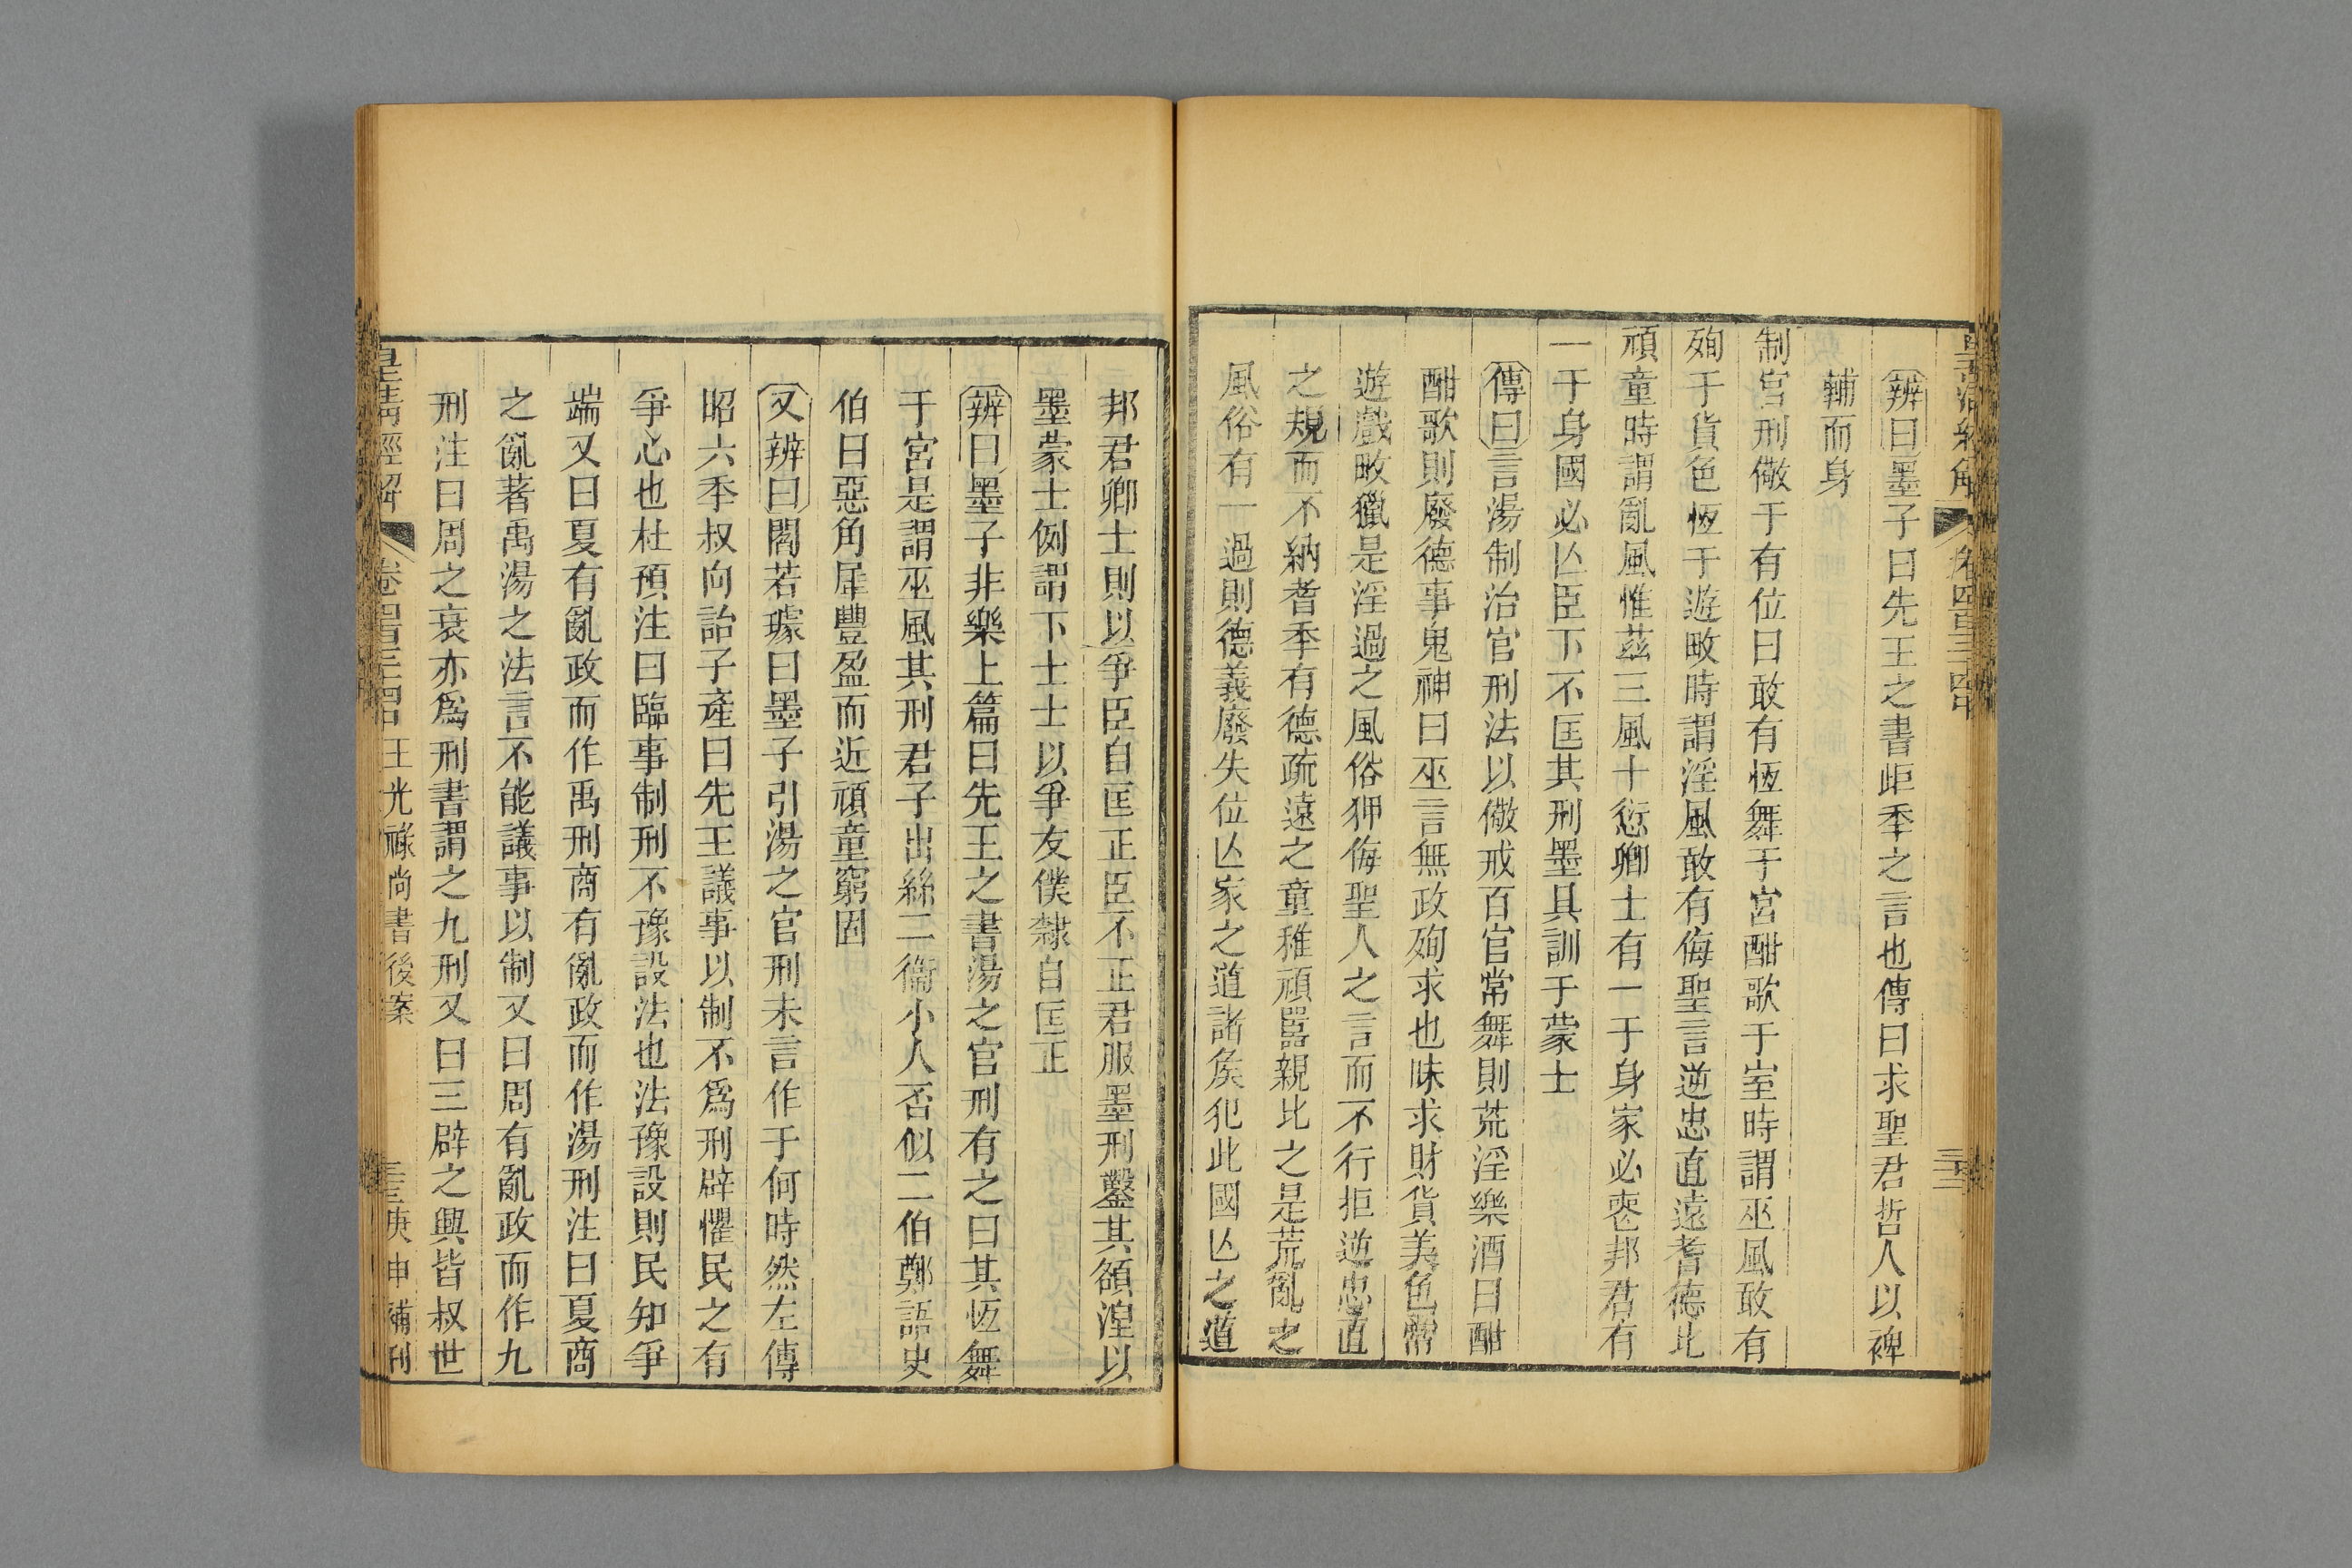 辨曰墨子曰先王之書歫秊之言也傳曰求聖君哲人以裨
輔而身
制官刑儆于有位曰敢有恆舞于宮酣歌于室時謂巫風敢有
殉于貨色恆于遊畋時謂淫風敢有侮聖言逆忠直遠耆德比
頑童時謂亂風惟茲三風十愆卿士有一于身家必喪邦君有
一于身國必亾臣下不匡其刑墨具訓于蒙士
傳曰言湯制治官刑法以儆戒百官常舞則荒淫樂酒曰酣
酣歌則廢德事鬼神曰巫言無政殉求也昧求財貨美色常
遊戲畋獵是淫過之風俗狎侮聖人之言而不行拒逆忠直
之規而不納耆秊有德疏遠之童稚頑嚚親比之是荒亂之
風俗有一過則德義廢失位亾家之道諸矦犯此國亾之道
邦君卿士則以爭臣自匡正臣不正君服墨刑鑿其頟湼以
墨蒙士例謂下士士以爭友僕隸自匡正
辨曰墨子非樂上篇曰先王之書湯之官刑有之曰其恆舞
于宮是謂巫風其刑君子出絲二衞小人否似二伯鄭語史
伯曰惡角犀豐盈而近頑童窮固
又辨曰閻若璩曰墨子引湯之官刑未言作于何時然左傳
昭六秊叔向詒子產曰先王議事以制不爲刑辟懼民之有
爭心也杜預注曰臨事制刑不豫設法也法豫設則民知爭
端又曰夏有亂政而作禹刑商有亂政而作湯刑注曰夏商
之亂著禹湯之法言不能議事以制又曰周有亂政而作九
刑注曰周之衰亦爲刑書謂之九刑又曰三辟之興皆叔世
皇清經解 卷四百三十四 王光祿尚書後案 三三 庚申補刊